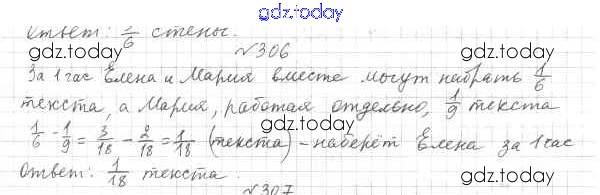 gdz.today
Ответ: 5/6 стены.
gdz.today gdz.today
№306
За 1 час Елена и Мария вместе могут набрать 1/6
gdz.today gdz.today
текста, а Мария, работая отдельно, 1/9 текста
gdz.today
1/6 - 1/9 = 3/18 - 2/18 = 1/18 (текста) - наберёт Елена за 1 час
gdz.today gdz.today
Ответ: 1/18 текста.
№307